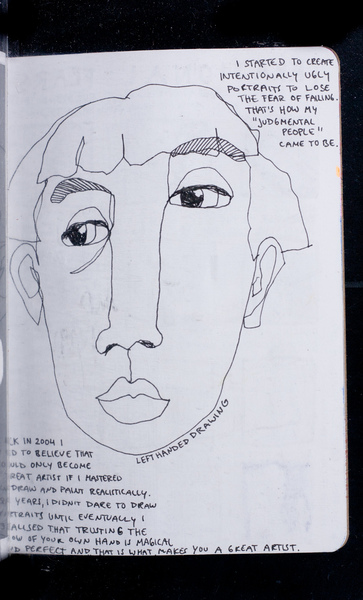 I STARTED TO CREATE
INTENTIONALLY UGLY
PORTRAITS TO LOSE
THE FEAR OF FAILING.
THAT'S HOW MY
"JUDGMENTAL
PEOPLE"
CAME TO BE.
LEFT HANDED DRAWING
CK IN 2004 I
D TO BELIEVE THAT
OULD ONLY BECOME
REAT ARTIST IF I MASTERED
DRAW AND PAINT REALISTICALLY.
YEARS, I DIDN'T DARE TO DRAW
TRAITS UNTIL EVENTUALLY I
ALISED THAT TRUSTING THE
OW OF YOUR OWN HAND IS MAGICAL
D PERFECT AND THAT IS WHAT MAKES YOU A GREAT ARTIST.